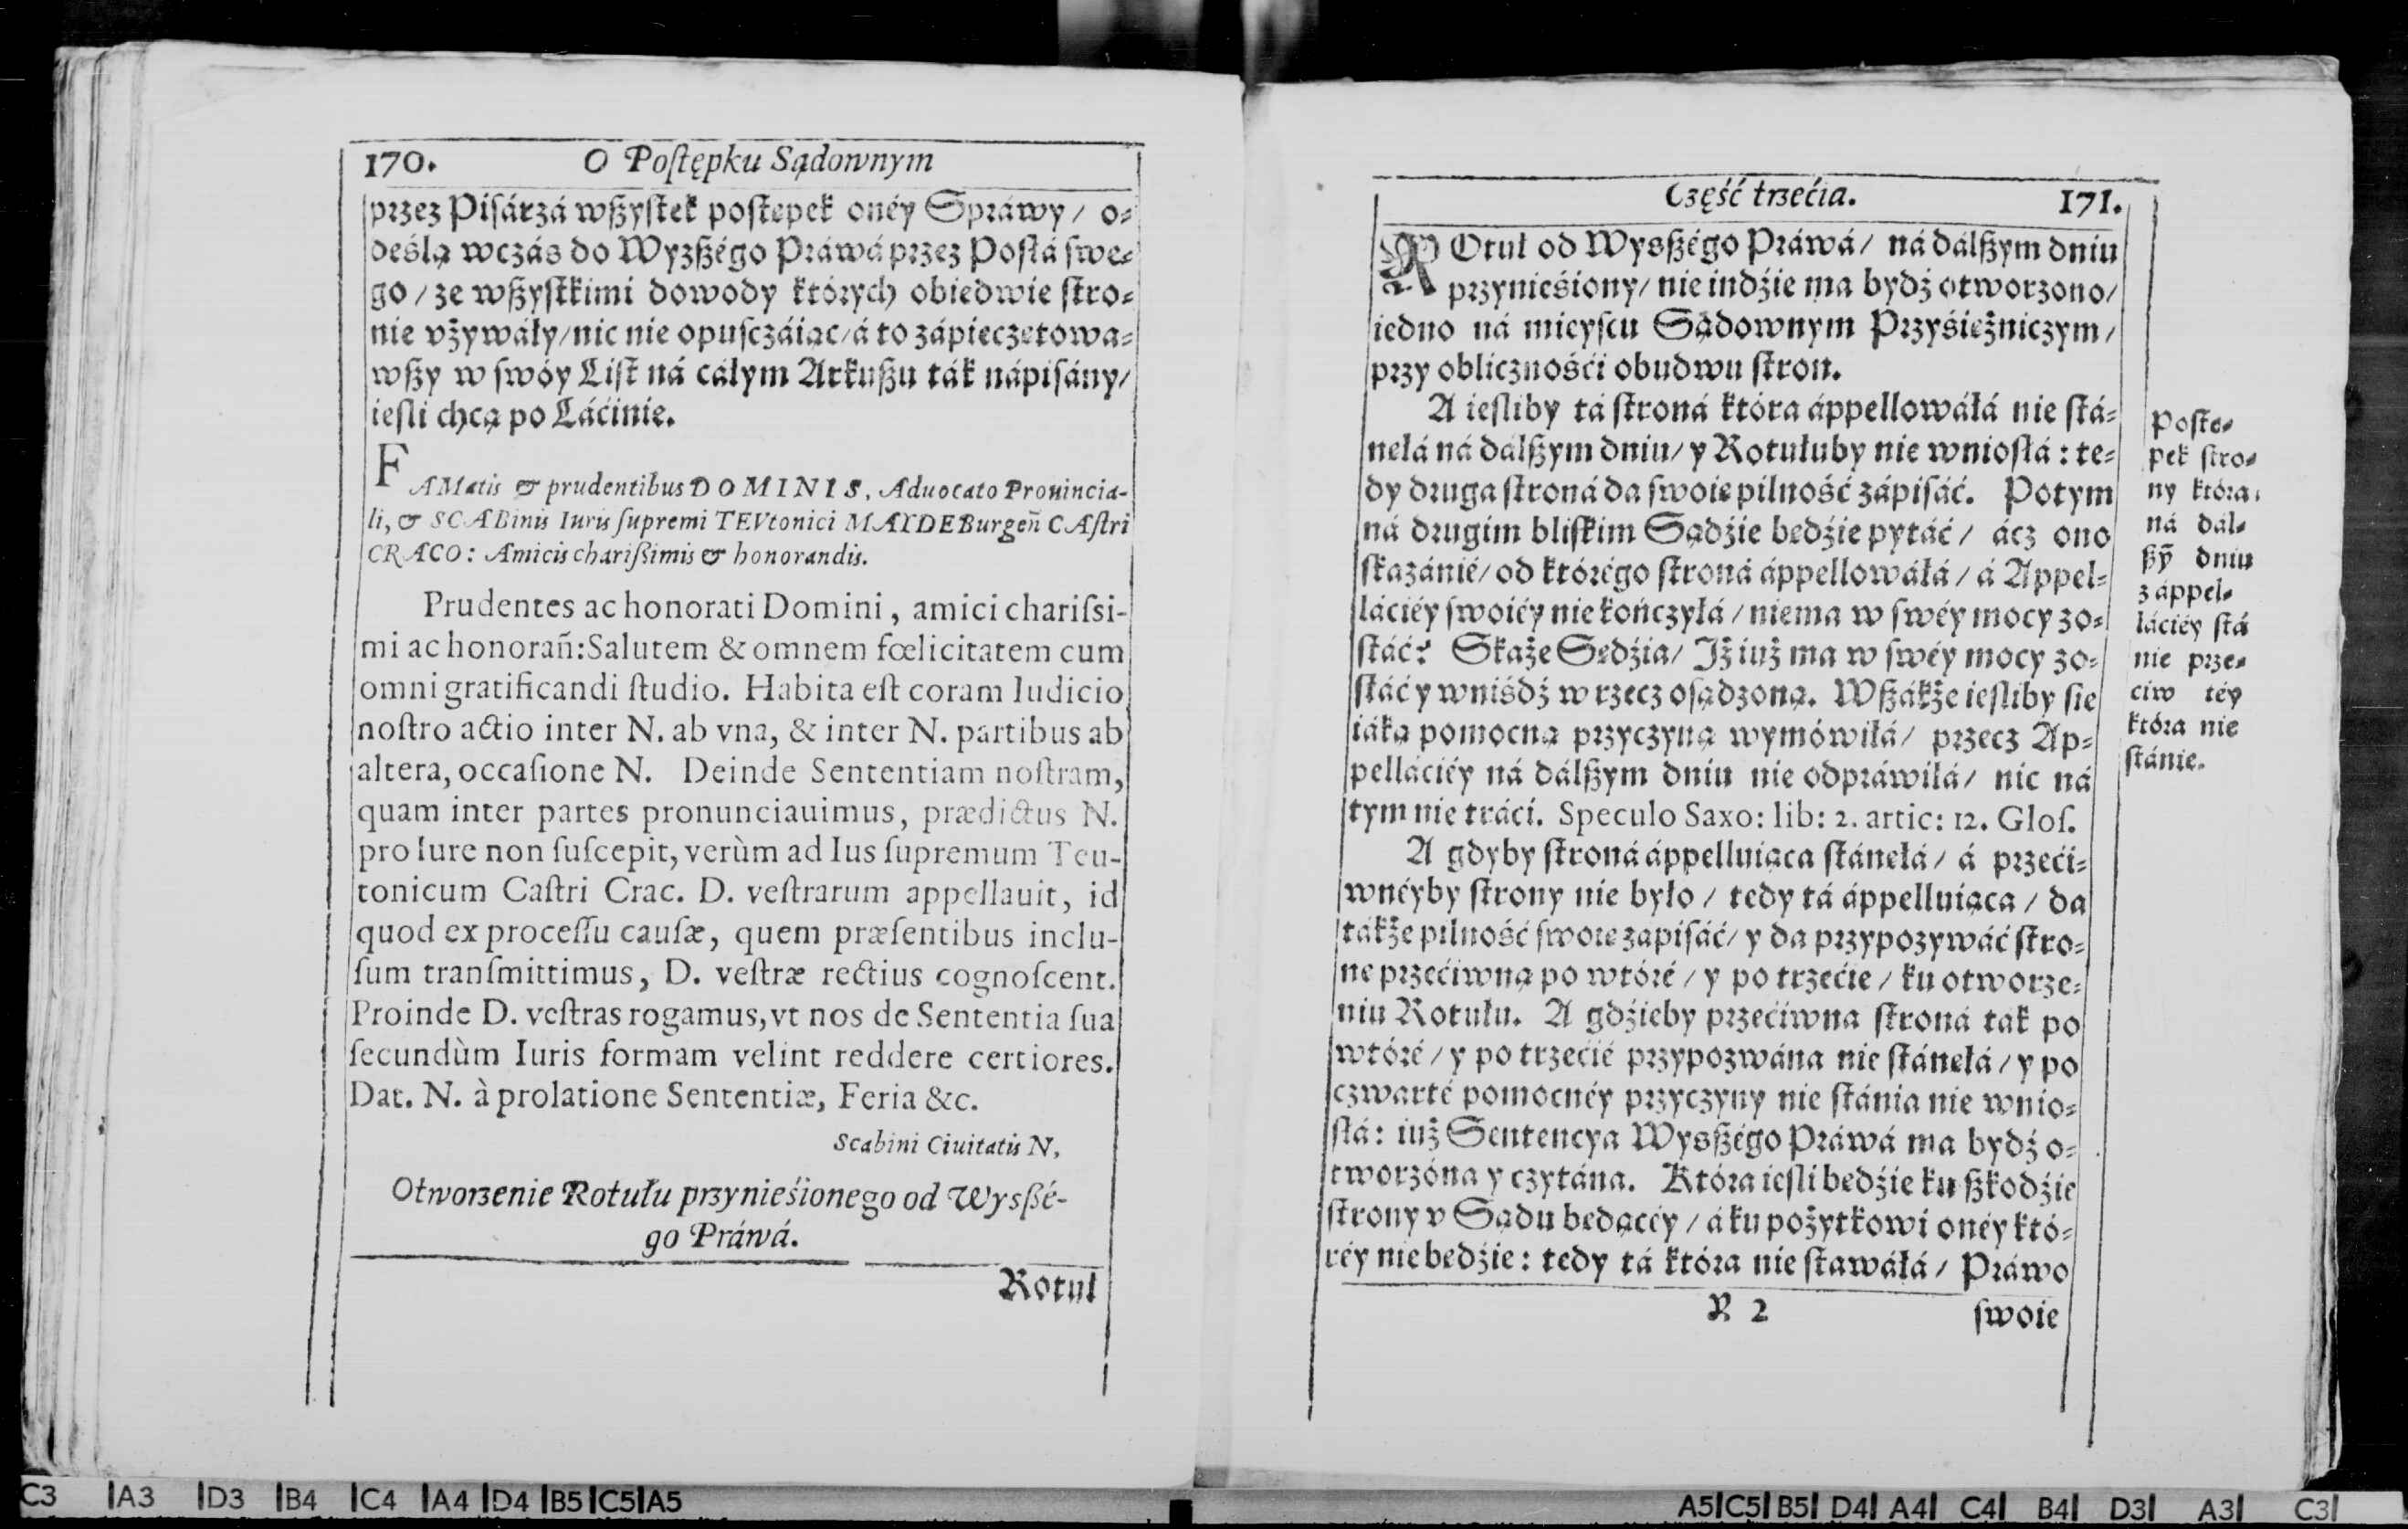 170. O Poſtępku Sądownym
przez Piſárzá wßyſtek poſtępek onéy Spráwy / o-
deślą wczás do Wyzßégo Práwá przez Poſłá ſwe-
go / ze wßyſtkimi dowody których obiedwie ſtro-
nie vżywáły / nic nie opuſczáiąc / á to zápieczętowa-
wßy w ſwóy Liſt ná cáłym Arkußu ták nápiſány /
ieſli chcą po Láćinie.
FAMatis & prudentibus DOMINIS, Aduocato Prouincia-
li, & SCABinis Iuris ſupremi TEVtonici MAYDEBurgen̄ CAſtri
CRACO: Amicis charißimis & honorandis.
Prudentes ac honorati Domini, amici chariſsi-
mi ac honoran̄: Salutem & omnem fœlicitatem cum
omni gratificandi ſtudio. Habita eſt coram Iudicio
noſtro actio inter N. ab vna, & inter N. partibus ab
altera, occaſione N. Deinde Sententiam noſtram,
quam inter partes pronunciauimus, prædictus N.
pro Iure non ſuſcepit, verùm ad Ius ſupremum Teu-
tonicum Caſtri Crac. D. veſtrarum appellauit, id
quod ex proceſſu cauſæ, quem præſentibus inclu-
ſum tranſmittimus, D. veſtræ rectius cognoſcent.
Proinde D. veſtras rogamus, vt nos de Sententia ſua
ſecundùm Iuris formam velint reddere certiores.
Dat. N. à prolatione Sententiæ, Feria &c.
Scabini Ciuitatis N,
Otworzenie Rotułu przynieśionego od Wysßé-
go Práwá.
Rotuł
Część trzećia. 171.
ROtuł od Wysßégo Práwá / ná dálßym dniu
przynieśiony / nie indźie ma bydź otworzono /
iedno ná mieyſcu Sądownym Przyśiężniczym /
przy obliczności obudwu ſtron.
A ieſliby tá ſtroná która áppellowáłá nie ſtá-
nęłá ná dálßym dniu / y Rotułuby nie wnioſłá : te-
dy druga ſtroná da ſwoię pilność zápiſáć. Potym
ná drugim bliſkim Sądźie będźie pytáć / ácz ono
ſkazánié / od którégo ſtroná áppellowáłá / á Appel-
láciéy ſwoiéy nie kończyłá / niema w ſwéy mocy zo-
ſtáć? Skaże Sędźia / Jż iuż ma w ſwéy mocy zo-
ſtáć y wniśdź w rzecz oſądzoną. Wßákże ieſliby ſię
iáką pomocną przyczyną wymówiłá / przecz Ap-
pelláciéy ná dálßym dniu nie odpráwiłá / nic ná
tym nie tráci. Speculo Saxo: lib: 2. artic: 12. Gloſ.
A gdyby ſtroná áppelluiąca ſtánęłá / á przeći-
wnéyby ſtrony nie było / tedy tá áppelluiąca / da
tákże pilność ſwoię zapiſáć / y da przypozywáć ſtro-
nę przećiwną po wtóré / y po trzećie / ku otworze-
niu Rotułu. A gdźieby przećiwna ſtroná tak po
wtóré / y po trzećié przypozwána nie ſtánęłá / y po
czwarté pomocnéy przyczyny nie ſtánia nie wnio-
ſłá : iuż Sentencya Wysßégo Práwá ma bydź o-
tworzóna y czytána. Która ieſli będźie ku ßkodźie
ſtrony v Sądu będącéy / á ku pożytkowi onéy któ-
réy nie będźie : tedy tá która nie ſtawáłá / Práwo
R 2 ſwoie
Poſtę-
pek ſtro-
ny która
ná dál-
ßy̅ dniu
z áppel-
láciéy ſtá
nie prze-
ciw téy
która nie
ſtánie.
C3 A3 D3 B4 C4 A4 D4 B5 C5 A5
A5 C5 B5 D4 A4 C4 B4 D3 A3 C3